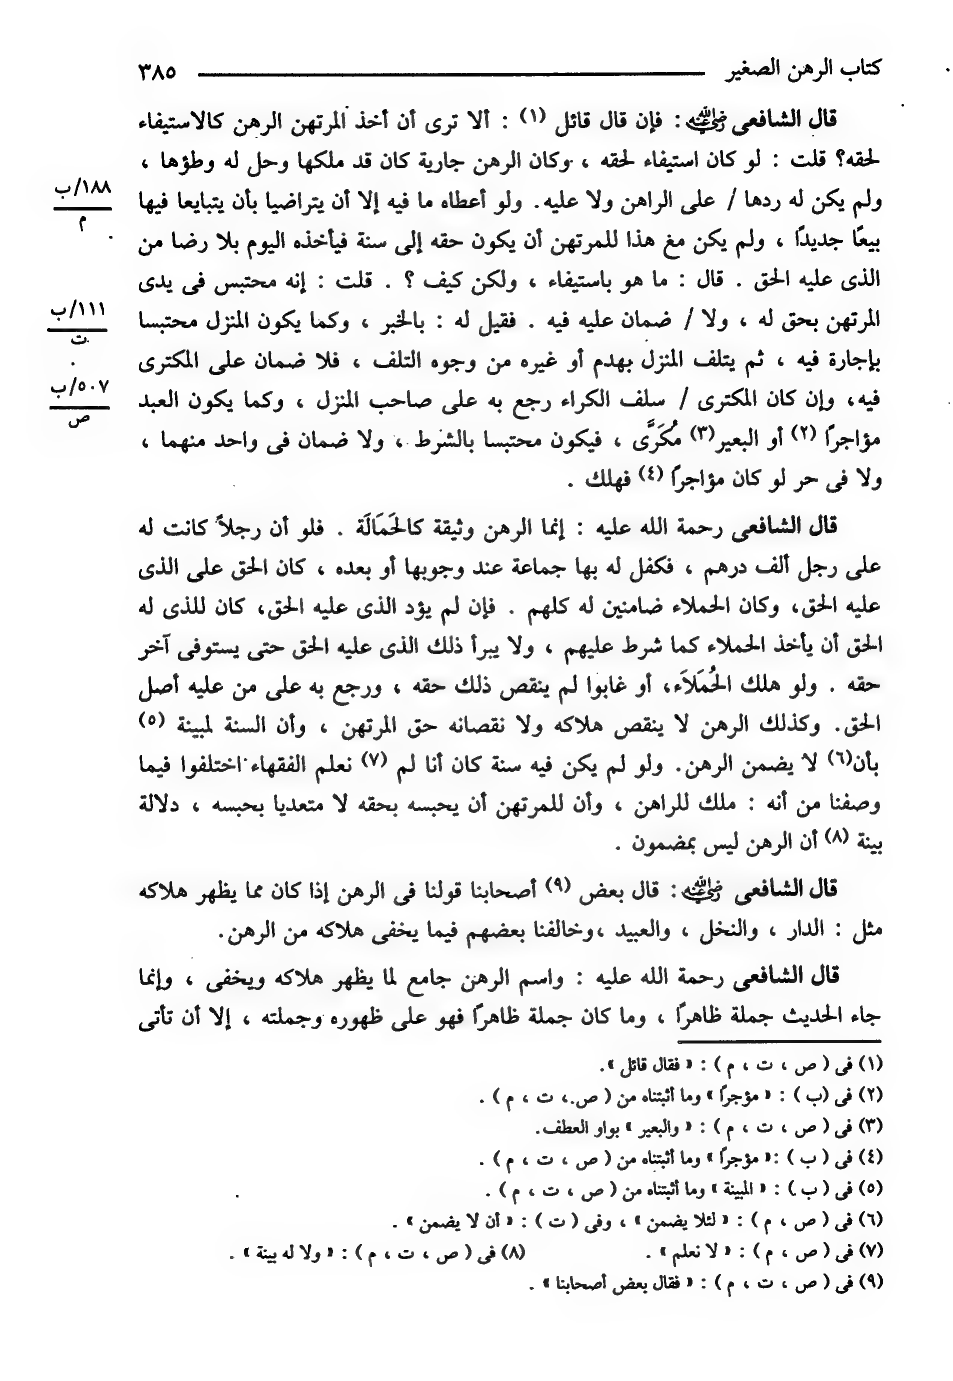 كتاب الرهن الصغير ٣٨٥
قال الشافعى رضي الله عنه : فإن قال قائل (١) : ألا ترى أن أخذ المرتهن الرهن كالاستيفاء
لحقه؟ قلت : لو كان استيفاء لحقه ، وكان الرهن جارية كان قد ملكها وحل له وطؤها ،
ولم يكن له ردها / على الراهن ولا عليه. ولو أعطاه ما فيه إلا أن يتراضيا بأن يتبايعا فيها
١٨٨/ب
م
بيعًا جديدًا ، ولم يكن مع هذا للمرتهن أن يكون حقه إلى سنة فيأخذه اليوم بلا رضا من
الذى عليه الحق . قال : ما هو باستيفاء ، ولكن كيف ؟ . قلت : إنه محتبس فى يدى
المرتهن بحق له ، ولا / ضمان عليه فيه . فقيل له : بالخبر ، وكما يكون المنزل محتبسا
١١١/ب
ت
بإجارة فيه ، ثم يتلف المنزل بهدم أو غيره من وجوه التلف ، فلا ضمان على المكترى
فيه، وإن كان المكترى / سلف الكراء رجع به على صاحب المنزل ، وكما يكون العبد
٥٠٧/ب
ص
مؤاجرًا (٢) أو البعير(٣) مُكَرًى ، فيكون محتبسا بالشرط ، ولا ضمان فى واحد منهما ،
ولا فى حر لو كان مؤاجرًا (٤) فهلك .
قال الشافعى رحمة الله عليه : إنما الرهن وثيقة كالحَمَالَة . فلو أن رجلاً كانت له
على رجل ألف درهم ، فكفل له بها جماعة عند وجوبها أو بعده ، كان الحق على الذى
عليه الحق، وكان الحملاء ضامنين له كلهم . فإن لم يؤد الذى عليه الحق، كان للذى له
الحق أن يأخذ الحملاء كما شرط عليهم ، ولا يبرأ ذلك الذى عليه الحق حتى يستوفى آخر
حقه . ولو هلك الحُمَلَاء، أو غابوا لم ينقص ذلك حقه ، ورجع به على من عليه أصل
الحق. وكذلك الرهن لا ينقص هلاكه ولا نقصانه حق المرتهن ، وأن السنة لمبينة (٥)
بأن(٦) لا يضمن الرهن. ولو لم يكن فيه سنة كان أنا لم (٧) نعلم الفقهاء اختلفوا فيما
وصفنا من أنه : ملك للراهن ، وأن للمرتهن أن يحبسه بحقه لا متعديا بحبسه ، دلالة
بينة (٨) أن الرهن ليس بمضمون .
قال الشافعى رضي الله عنه : قال بعض (٩) أصحابنا قولنا فى الرهن إذا كان مما يظهر هلاكه
مثل : الدار ، والنخل ، والعبيد ،وخالفنا بعضهم فيما يخفى هلاكه من الرهن.
قال الشافعى رحمة الله عليه : واسم الرهن جامع لما يظهر هلاكه ويخفى ، وإنما
جاء الحديث جملة ظاهرًا ، وما كان جملة ظاهرًا فهو على ظهوره وجملته ، إلا أن تأتى
(١) فى ( ص ، ت ، م ) : « فقال قائل ».
(٢) فى (ب ) : « مؤجرًا » وما أثبتناه من ( ص ، ت ، م ) .
(٣) فى ( ص ، ت ، م ) : « والبعير » بواو العطف.
(٤) فى ( ب ) :« مؤجرًا » وما أثبتناه من ( ص ، ت ، م ) .
(٥) فى ( ب ) : « المبينة » وما أثبتناه من ( ص ، ت ، م ) .
(٦) فى ( ص ، م ) : « لئلا يضمن » ، وفى ( ت ) : « أن لا يضمن » .
(٧) فى ( ص ، م ) : « لا نعلم » . (٨) فى ( ص ، ت ، م ) : « ولا له بينة » .
(٩) فى ( ص ، ت ، م ) : « فقال بعض أصحابنا » .